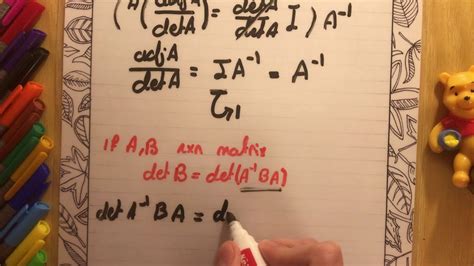 (A(adjA/detA) = detA/detA I) A⁻¹
adjA/detA = IA⁻¹ = A⁻¹
1
if A,B nxn matrix
det B = det(A⁻¹BA)
det A⁻¹ B A = d